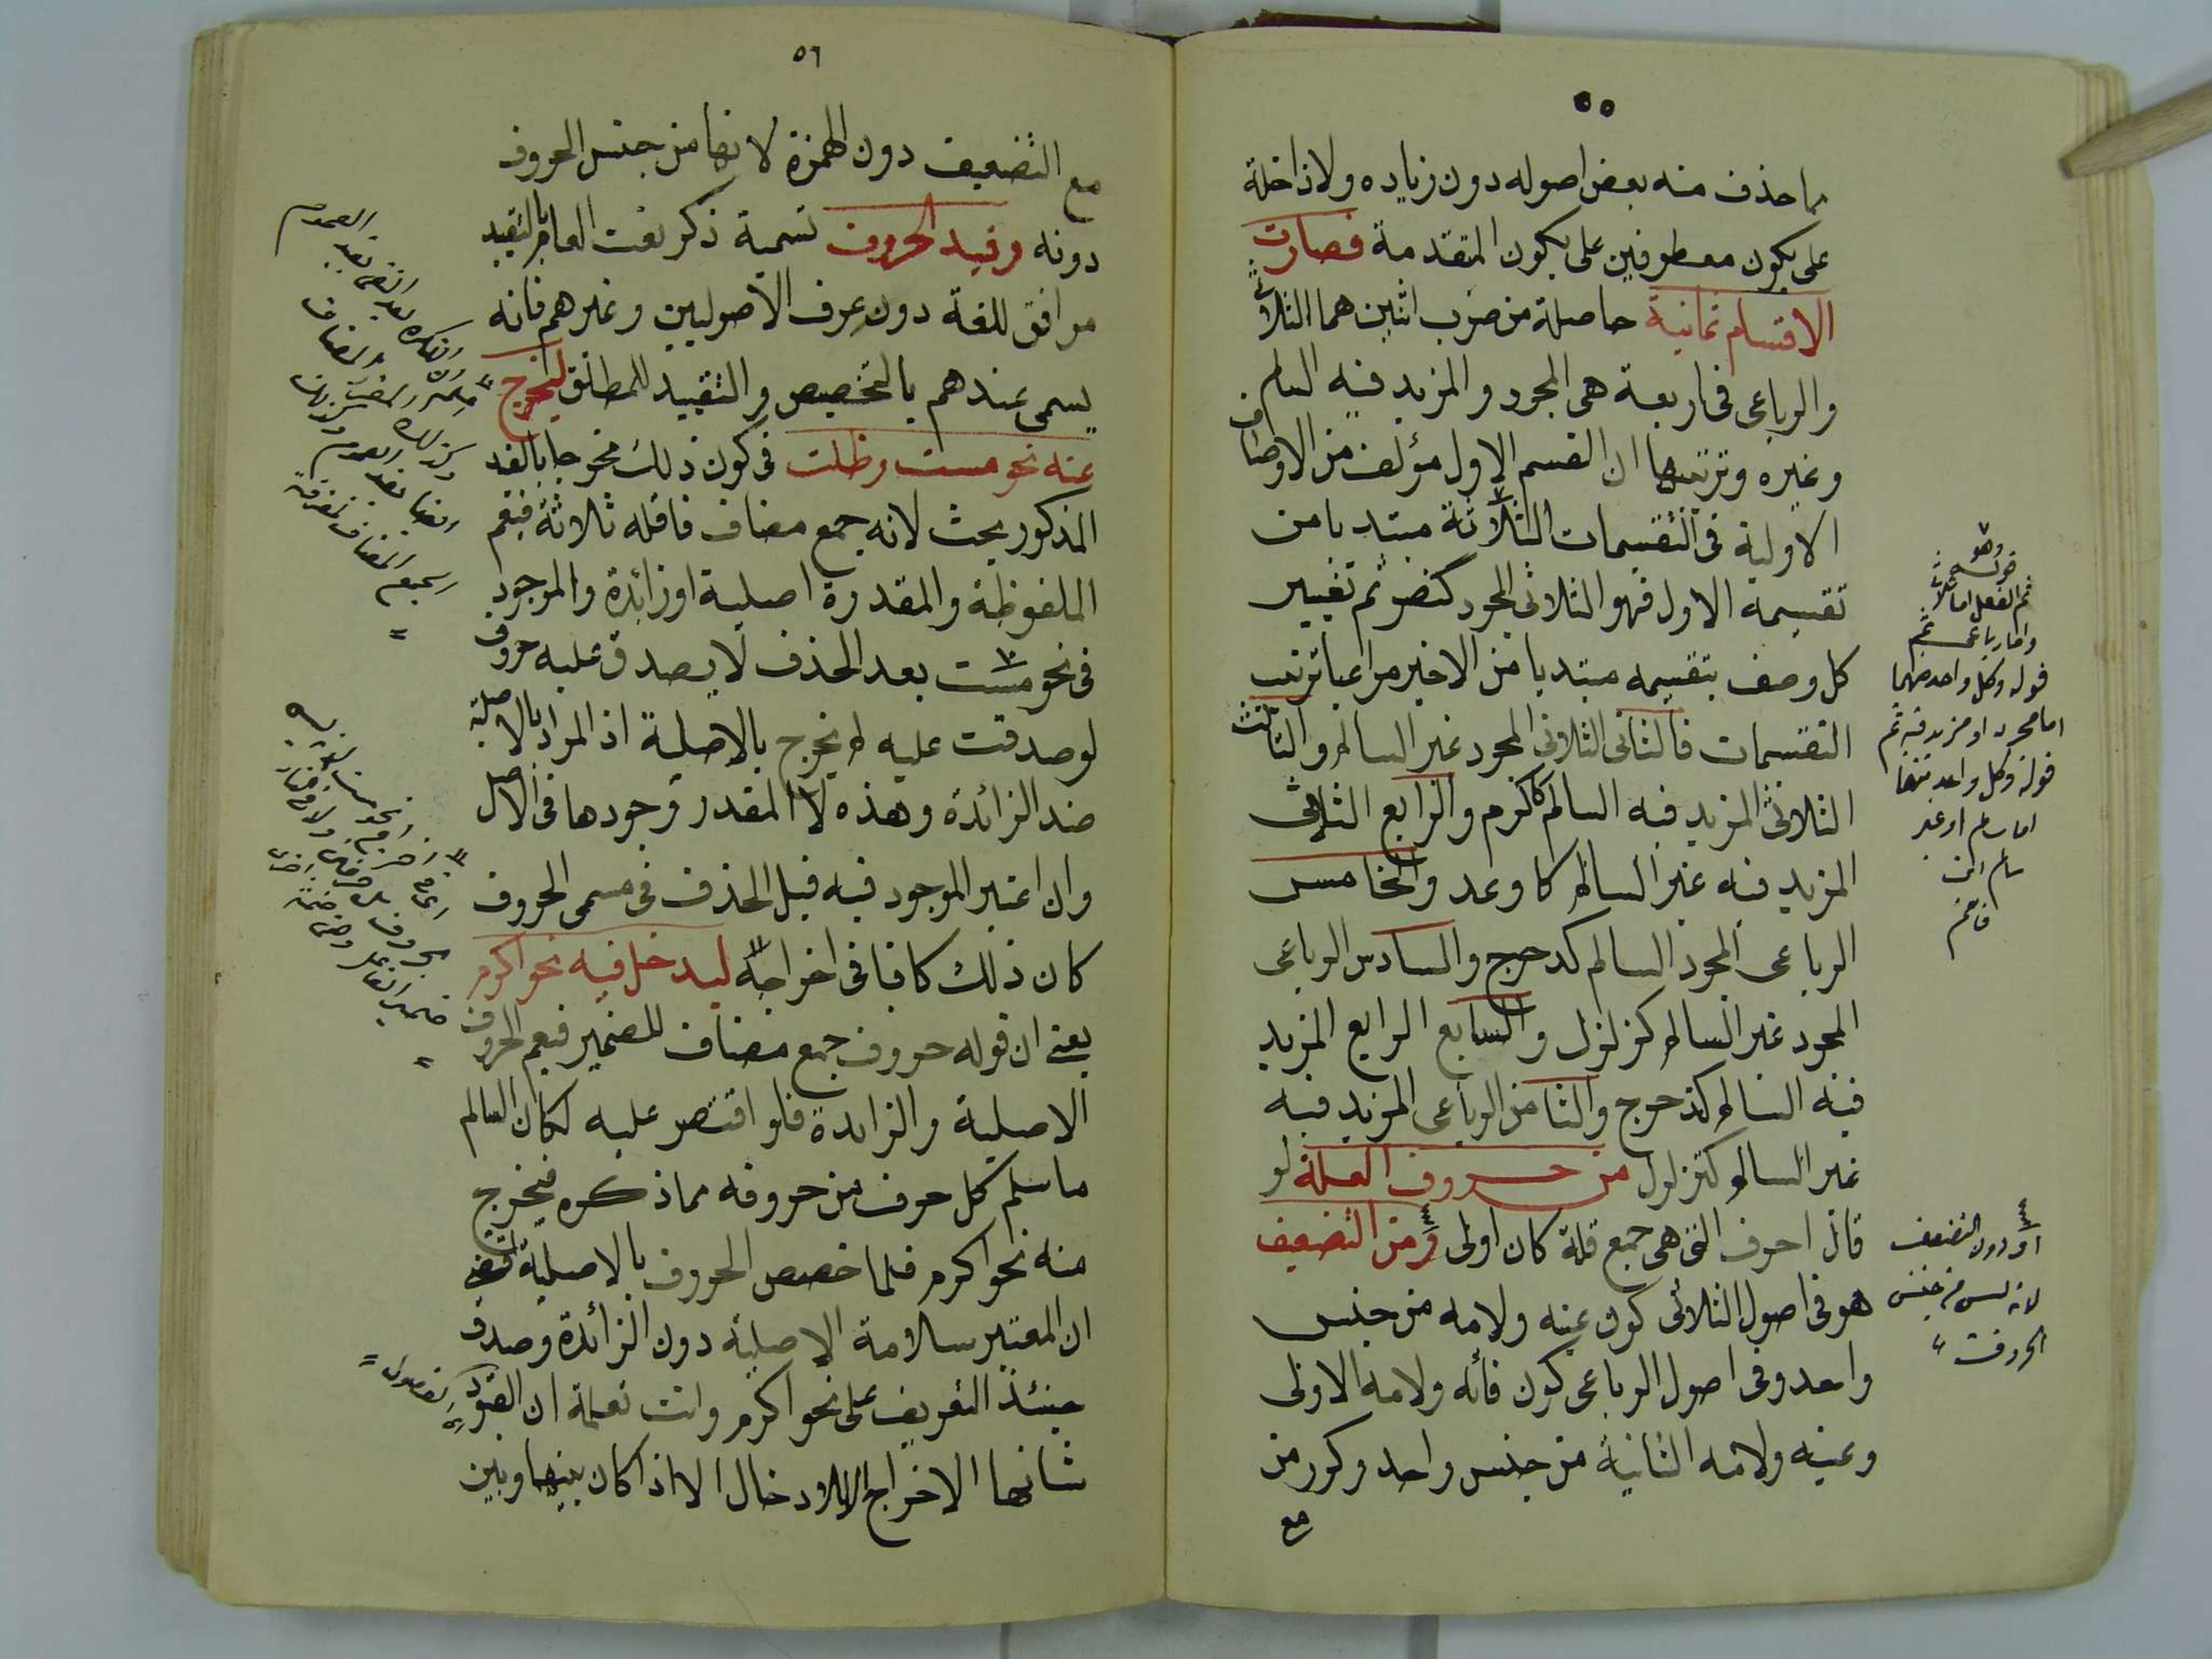 ٥٥
مما حذف منه بعض اصوله دون زياده ولا داخلة
على يكون معطوفين على يكون المتقدمة فصارت
الاقسام ثمانية حاصلة من ضرب اثنين هما الثلاثى
والرباعى فى اربعة هى المجرد والمزيد فيه السالم
وغيره وترتيبها ان القسم الاول مؤلف من الاوصاف
الاولية فى التقسيمات الثلاثة مبتديا من
تقسيمه الاول فهو الثلاثى المجرد كنصر ثم تغيير
كل وصف بتقسيمه مبتديا من الاخير مراعيا ترتيب
التقسيمات فالثانى الثلاثى المجرد غير السالم والثالث
الثلاثى المزيد فيه السالم كاكرم والرابع الثلاثى
المزيد فيه غير السالم كاوعد والخامس
الرباعى المجرد السالم كدحرج والسادس الرباعى
المجرد غير السالم كزلزل والسابع الرابع المزيد
فيه السالم كتدحرج والثامن الرباعى المزيد فيه
غير السالم كتزلزل من حروف العلة لو
قال احرف التى هى جمع قلة كان اولى ومن التضعيف
هو فى اصول الثلاثى كون عينه ولامه من جنس
واحد وفى اصول الرباعى كون فائه ولامه الاولى
وعينه ولامه الثانية من جنس واحد وكور من
مع
وهو
قوله
ثم الفعل اما ثلاثى
واما رباعى ثم
قوله وكل واحد منهما
اما مجرد او مزيد فيه ثم
قوله وكل واحد منها
اما سالم او غير
سالم
فافهم
اى دون التضعيف
لانه ليس من جنس
الحروف
٥٦
مع التضعيف دون الهمزة لانها من جنس الحروف
دونه وقيد الحروف تسمية ذكر نعت العام بالتقييد
موافق للغة دون عرف الاصوليين وغيرهم فانه
يسمى عندهم بالتخصيص والتقييد للمطلق ليخرج
عنه نحو مست وظلت فى كون ذلك مخرجا بالقيد
المذكور بحث لانه جمع مضاف فاقله ثلاثة فيعم
الملفوظة والمقدرة اصلية او زائدة والموجود
فى نحو مست بعد الحذف لا يصدق عليه حروف
لو صدقت عليه لم يخرج بالاصلية اذ المراد بالاصلية
ضد الزائدة وهذه لا المقدر وجودها فى الاصل
وان اعتبر الموجود فيه قبل الحذف فى مسمى الحروف
كان ذلك كافيا فى اخراجه ليدخل فيه نحو اكرم
يعنى ان قوله حروف جمع مضاف للضمير فيعم الحروف
الاصلية والزايدة فلو اقتصر عليه لكان السالم
ما سلم كل حرف من حروفه مما ذكره فيخرج
منه نحو اكرم فلما خصص الحروف بالاصلية
ان المعتبر سلامة الاصلية دون الزائدة وصدق
حينئذ التعريف على نحو اكرم وانت تعلم ان القيود
شانها الاخراج لا الادخال الا اذا كان بينها وبين